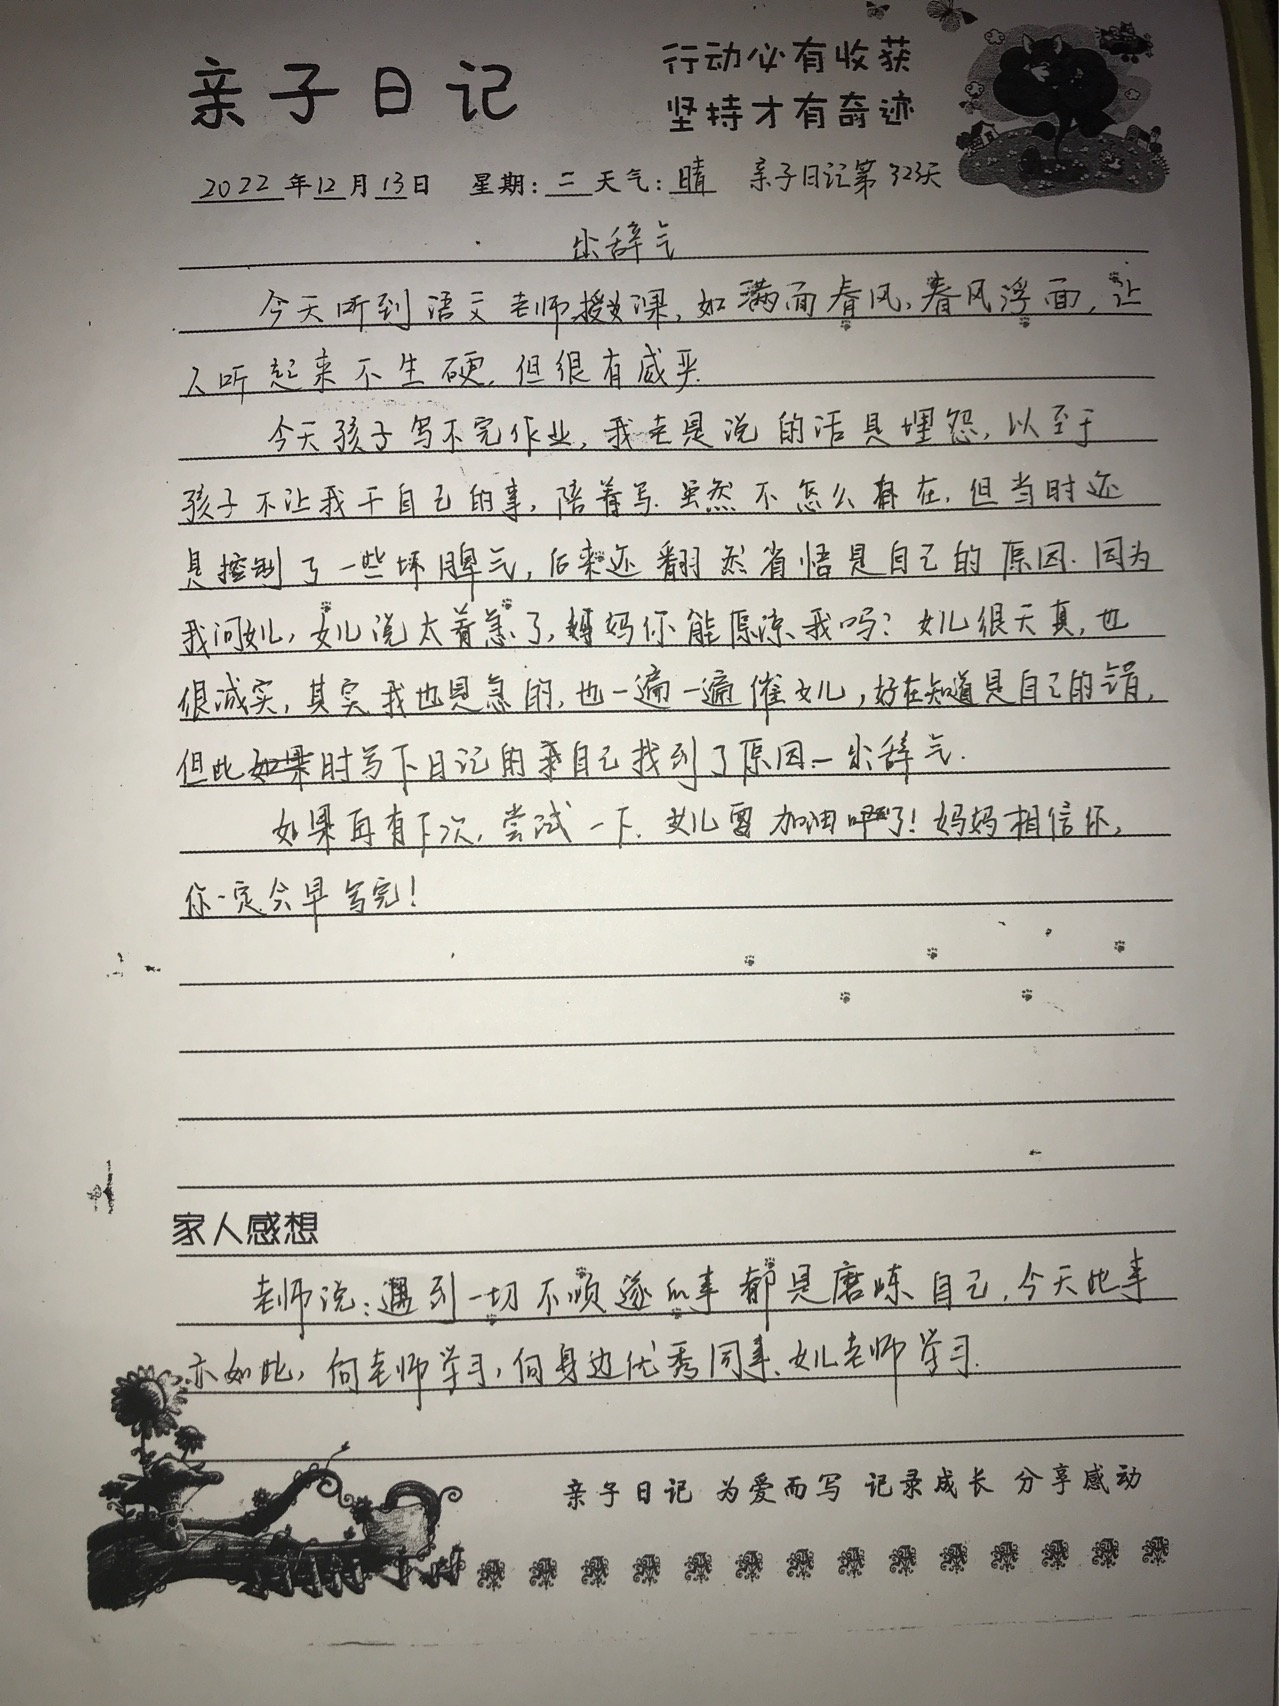 亲子日记
行动必有收获
坚持才有奇迹
2022年12月13日 星期:二 天气:晴 亲子日记第323天
出辞气
今天听到语文老师授课,如满面春风,春风浮面,让
人听起来不生硬,但很有威严.
今天孩子写不完作业,我老是说的话是埋怨,以至于
孩子不让我干自己的事,陪着写.虽然不怎么自在,但当时还
是控制了一些坏脾气,后来还翻然省悟是自己的原因.因为
我问女儿,女儿说太着急了,妈妈你能原谅我吗?女儿很天真,也
很诚实,其实我也是急的,也一遍一遍催女儿,好在知道是自己的错,
但此时写下日记的我自己找到了原因—出辞气.
如果再有下次,尝试一下.女儿要加油啊了!妈妈相信你,
你一定会早写完!
家人感想
老师说:遇到一切不顺遂的事都是磨炼自己,今天此事
亦如此,向老师学习,向身边优秀同事、女儿老师学习.
亲子日记 为爱而写 记录成长 分享感动